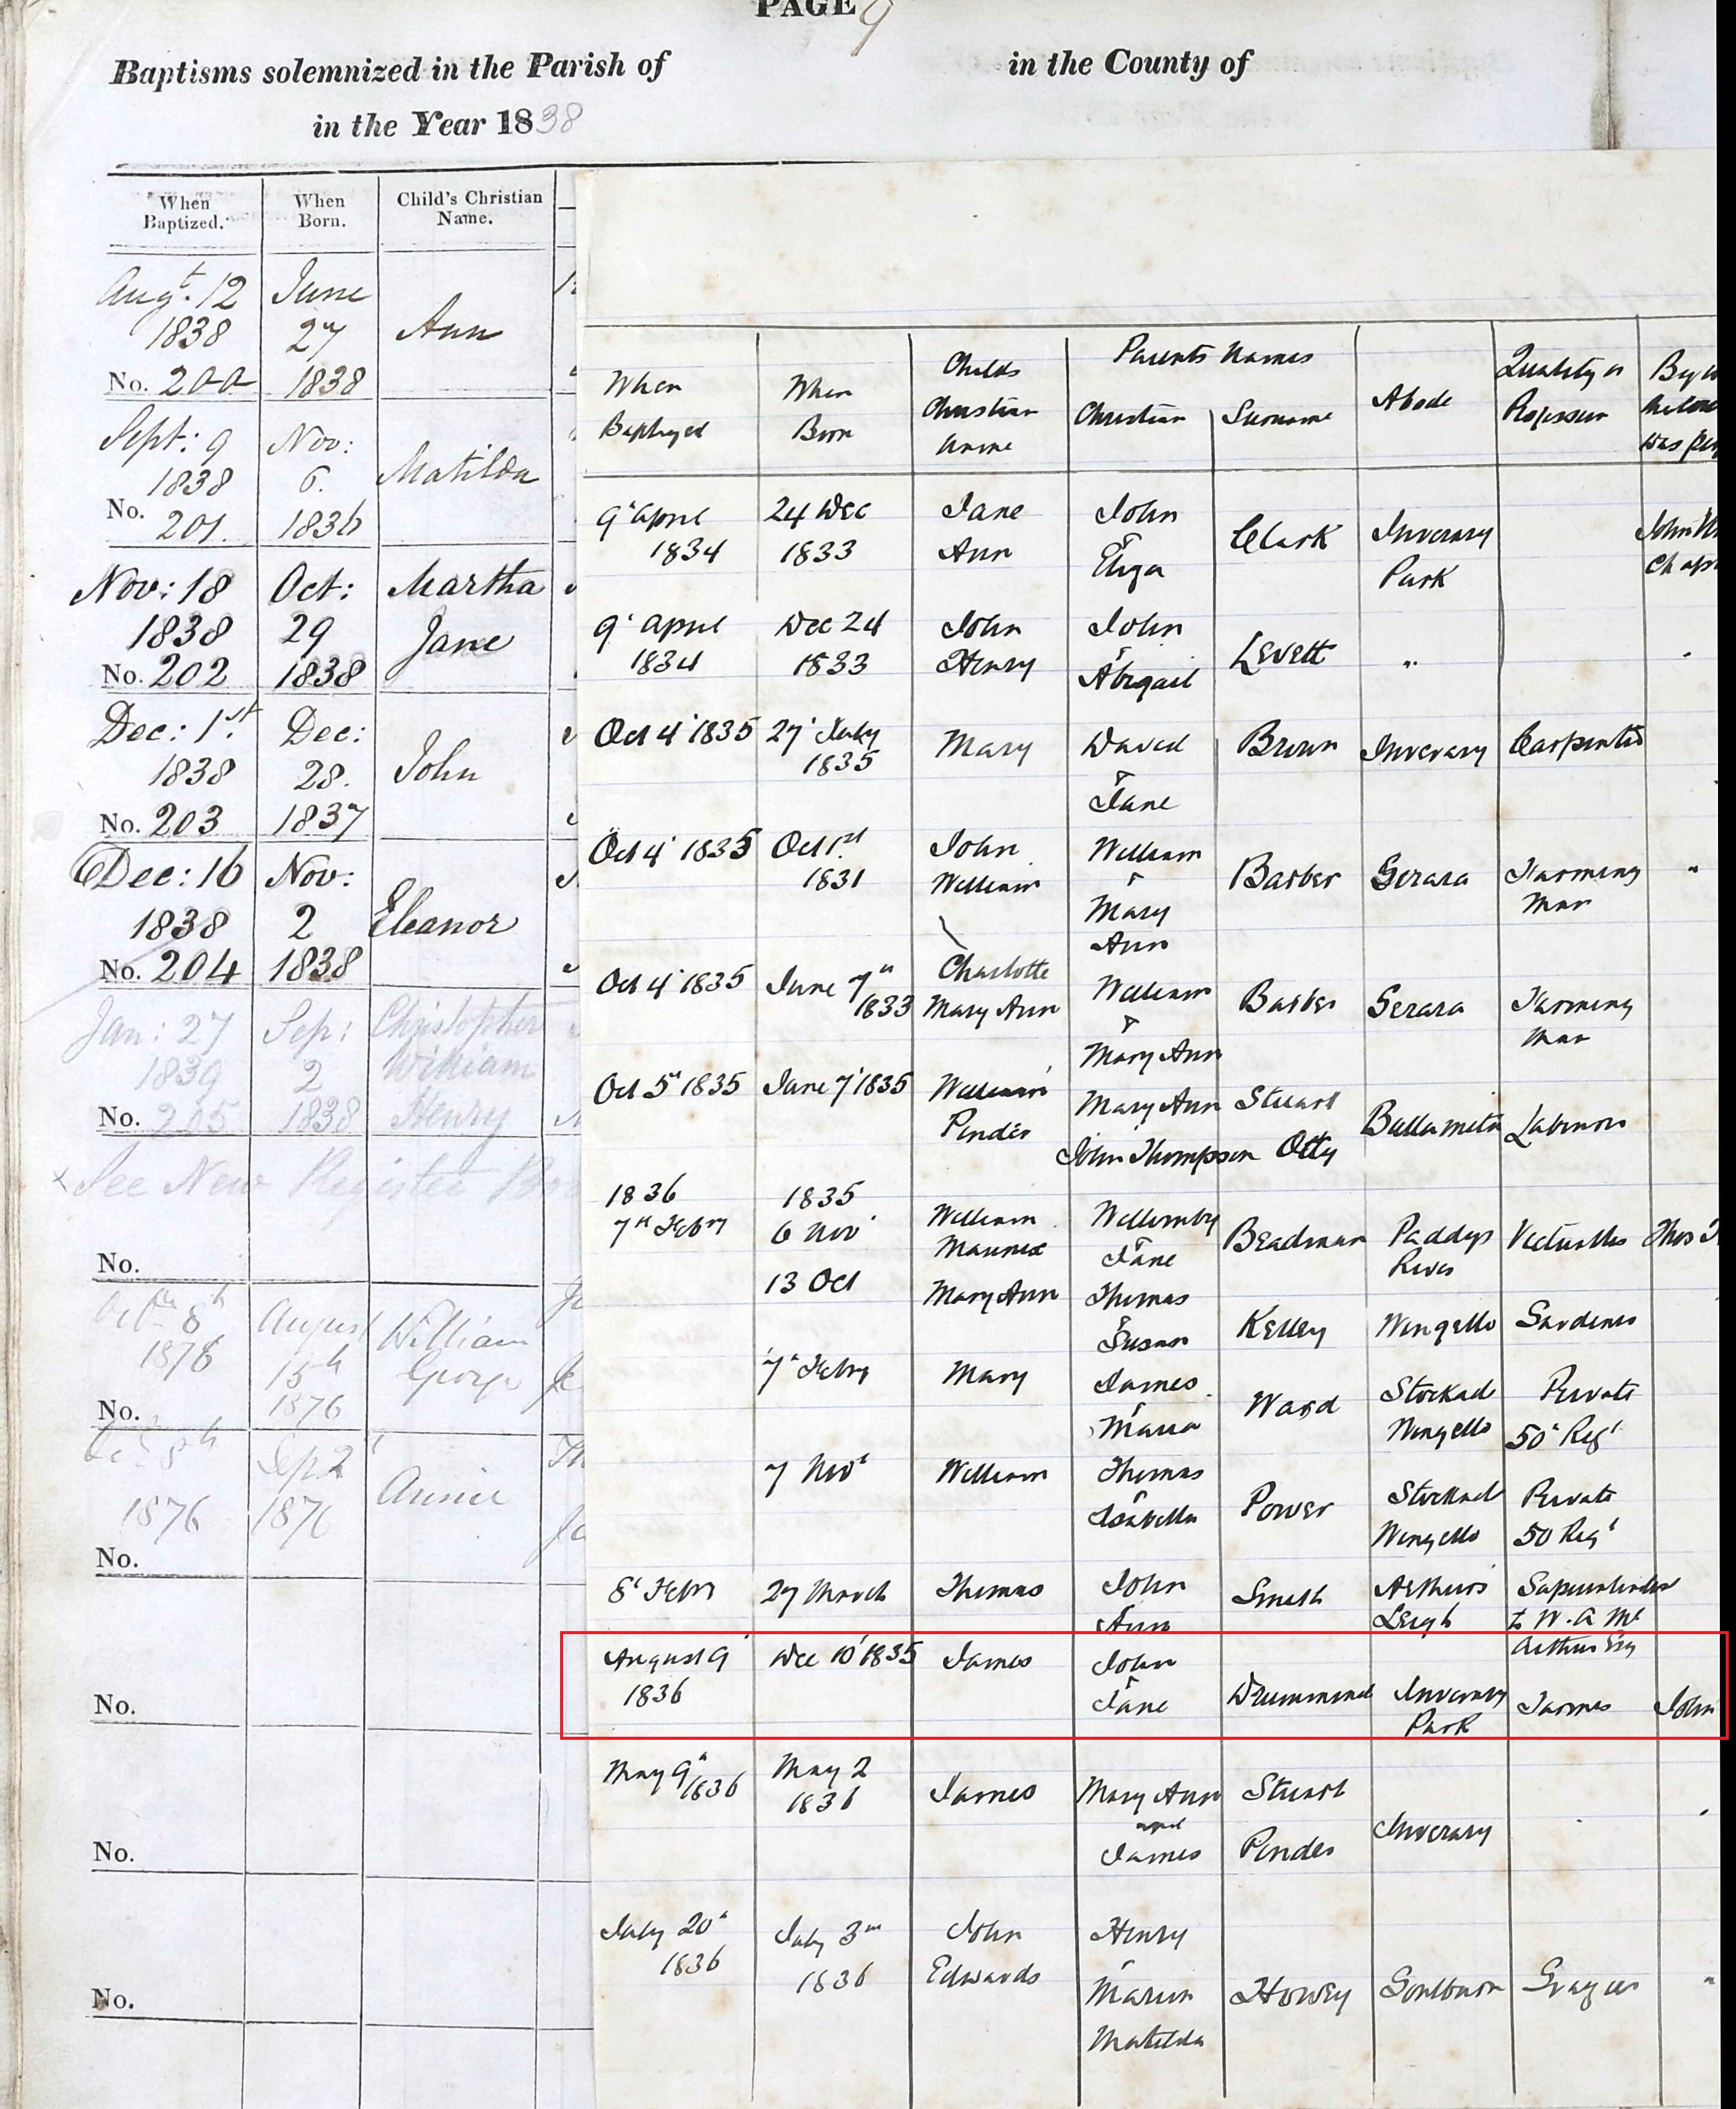 PAGE 9
Baptisms solemnized in the Parish of in the County of
in the Year 1838
When Baptized. When Born. Child's Christian Name.
Augt. 12 June
1838 27 Ann
No. 200 1838
Sept: 9 Nov:
1838 6. Matilda
No. 201. 1836
Nov: 18 Oct: Martha
1838 29 Jane
No. 202 1838
Dec: 1st. Dec:
1838 28. John
No. 203 1837
Dec: 16 Nov:
1838 2 Eleanor
No. 204 1838
Jan: 27 Sep: Christopher
1839 2 William
No. 205 1838 Henry
x See New Register
No.
8th August William
1876 15th George
No. 1876
8th Sep 2 Annie
1876 1876
No.
No.
No.
No.
Parents Names
When Baptized When Born Childs Christian name Christian Surname Abode Quality or Profession By
was
9 April 24 Dec Jane John Clark Inverary John
1834 1833 Ann & Eliza Park Chap
9 April Dec 24 John John Levett "
1834 1833 Henry & Abigail
Oct 4 1835 27 July Mary David Brown Inverary Carpenter
1835 & Jane
Oct 4 1835 Oct 1st John William Barber Gerara Farming "
1831 William & Mary Ann man
Oct 4 1835 June 7th Charlotte William Barber Gerara Farming
1833 Mary Ann & Mary Ann man
Oct 5 1835 June 7 1835 William Mary Ann Stuart
Pinder John Thompson Otty Labourer
1836 1835
7th Febry 6 Nov William & Jane Beadman Paddys River Thos
13 Oct Mary Ann Thomas & Susan Kelley Wingello Gardener
7 Febry Mary James & Maria Ward Stockad Wingello Private 50 Regt
7 Novr William Thomas & Isabella Power Stockad Wingello Private 50 Regt
8 Febry 27 March Thomas John Ann Smith Arthurs Leigh to W. A Mc
Arthur Esq
August 9 Dec 10 1835 James John
1836 & Jane Drummond Inverary Park Farmer John
May 9th 1836 May 2 1836 James Mary Ann Stuart
and James Pinder Inverary
July 20th July 3rd John Henry
1836 1836 Edwards & Maria Matilda Howey Goulburn Grazier "